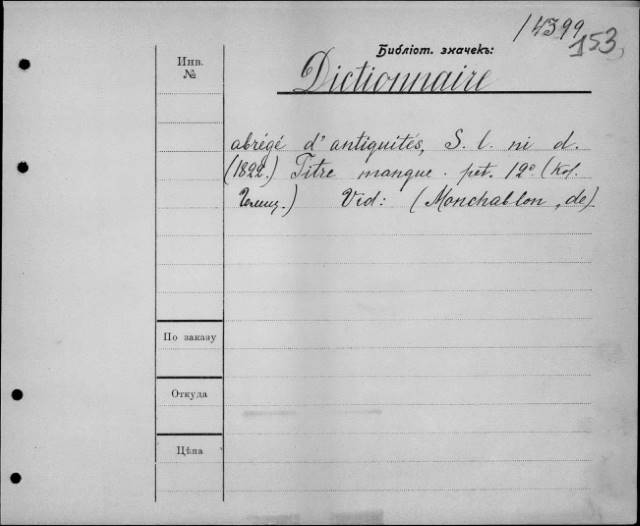 14399
153
Библіот. значекъ:
Инв.
№
Dictionnaire
abrégé d'antiquités, S. l. ni d.
(1822.) Titre manque. pet. 12° (Кол.
) Vid: (Monchablon, de).
По заказу
Откуда
Цѣна